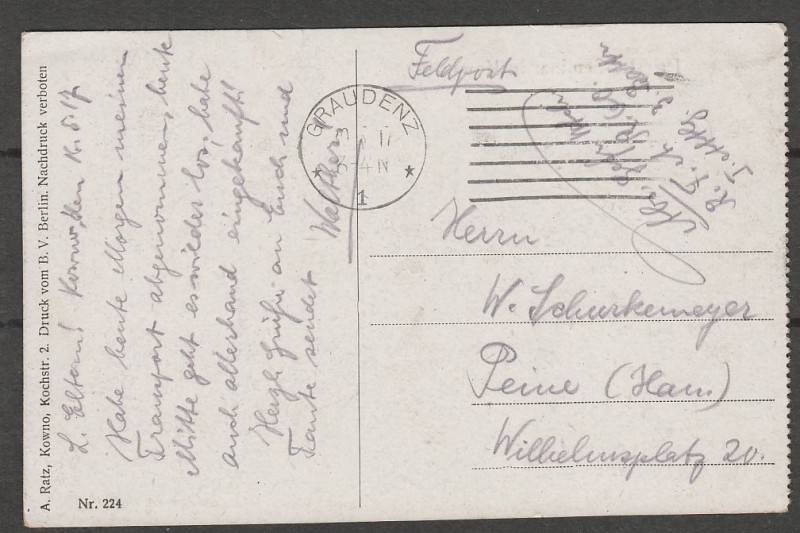 A. Ratz, Kowno, Kochstr. 2. Druck vom B. V. Berlin. Nachdruck verboten
Nr. 224
L. Eltern! Kowno, den
Habe heute Morgen meinen
Transport abgenommen, heute
Mitte geht es wieder los, habe
auch allerhand eingekauft!
Herzl. Grüße an Euch und
Tante sendet Walther!
Feldpost
GRAUDENZ
1
Herrn
W. Schurkemeyer
Peine (Han.)
Wilhelmsplatz 20.